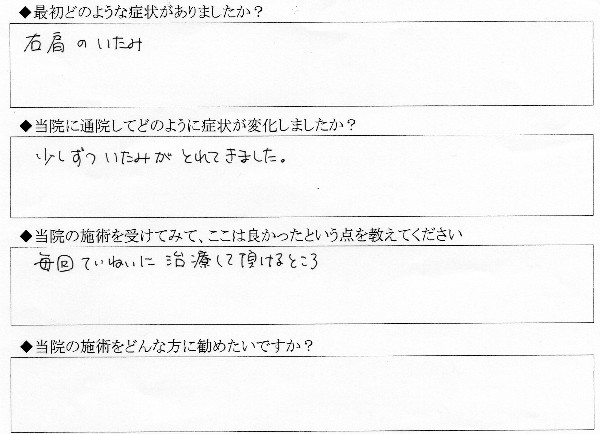 ◆最初どのような症状がありましたか？
右肩のいたみ
◆当院に通院してどのように症状が変化しましたか？
少しずついたみがとれてきました。
◆当院の施術を受けてみて、ここは良かったという点を教えてください
毎回ていねいに治療して頂けるところ
◆当院の施術をどんな方に勧めたいですか？